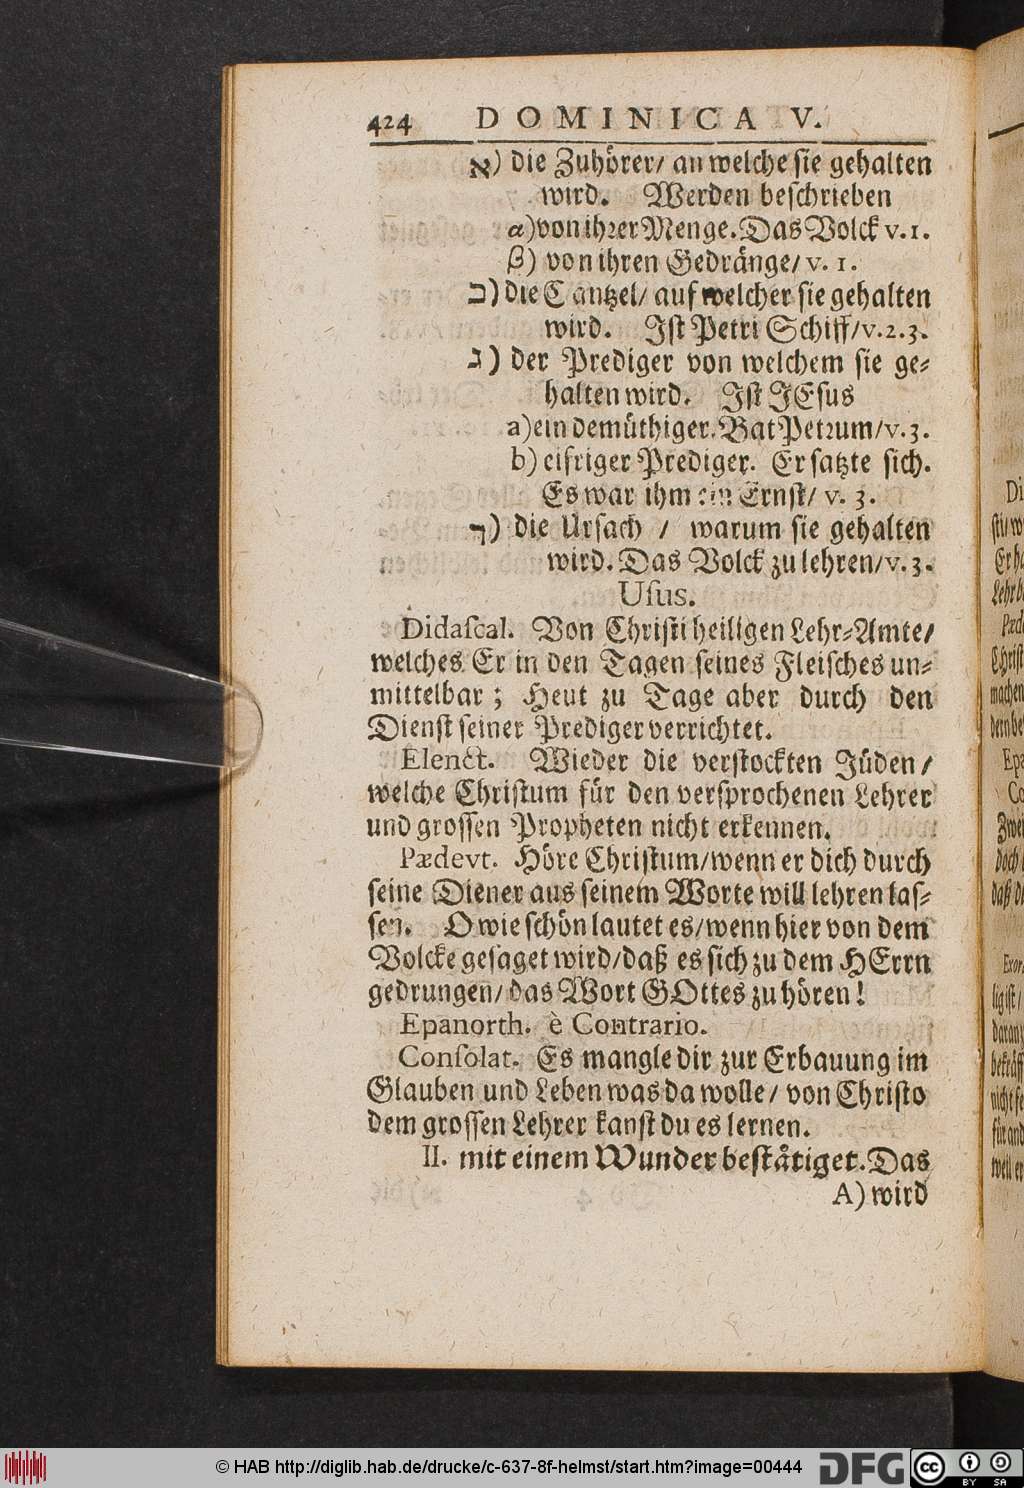 424 DOMINICA V.
א) die Zuhörer/ an welche sie gehalten
wird. Werden beschrieben
α) von ihrer Menge. Das Volck v. 1.
β) von ihren Gedränge/ v. 1.
ב) die Cantzel/ auf welcher sie gehalten
wird. Ist Petri Schiff/ v. 2. 3.
ג) der Prediger von welchem sie ge⸗
halten wird. Ist JEsus
a) ein demüthiger. Bat Petrum/ v. 3.
b) eifriger Prediger. Er satzte sich.
Es war ihm ein Ernst/ v. 3.
ד) die Ursach / warum sie gehalten
wird. Das Volck zu lehren/ v. 3.
Uſus.
Didaſcal. Von Christi heiligen Lehr⸗Amte/
welches Er in den Tagen seines Fleisches un⸗
mittelbar; Heut zu Tage aber durch den
Dienst seiner Prediger verrichtet.
Elenct. Wieder die verstockten Jüden/
welche Christum für den versprochenen Lehrer
und grossen Propheten nicht erkennen.
Pædevt. Höre Christum/ wenn er dich durch
seine Diener aus seinem Worte will lehren las⸗
sen. O wie schön lautet es/ wenn hier von dem
Volcke gesaget wird/ daß es sich zu dem HErrn
gedrungen/ das Wort GOttes zu hören!
Epanorth. è Contrario.
Conſolat. Es mangle dir zur Erbauung im
Glauben und Leben was da wolle/ von Christo
dem grossen Lehrer kanst du es lernen.
II. mit einem Wunder bestätiget. Das
A) wird
© HAB http://diglib.hab.de/drucke/c-637-8f-helmst/start.htm?image=00444
DFG
CC BY SA